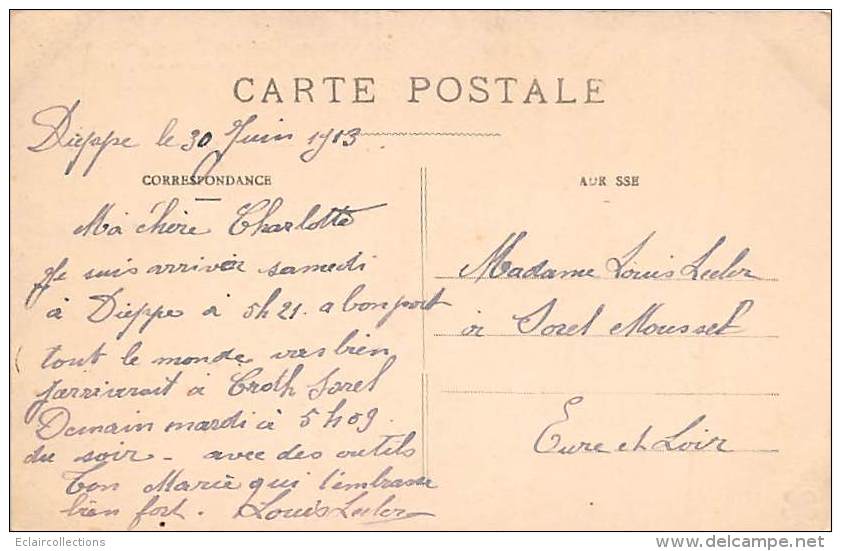 CARTE POSTALE
Dieppe le 30 Juin 1913
CORRESPONDANCE
Ma chère Charlotte
Je suis arriver samedi
à Dieppe à 5h21. a bon port
tout le monde vas bien
J'arriverait à Croth Sorel
Demain mardi à 5h09.
du soir - avec des outils
Ton Marie qui t'embrasse
bien fort. Louis Lecler
ADR SSE
Madame Louis Lecler
à Sorel Moussel
Eure et Loir
Eclaircollections
www.delcampe.net